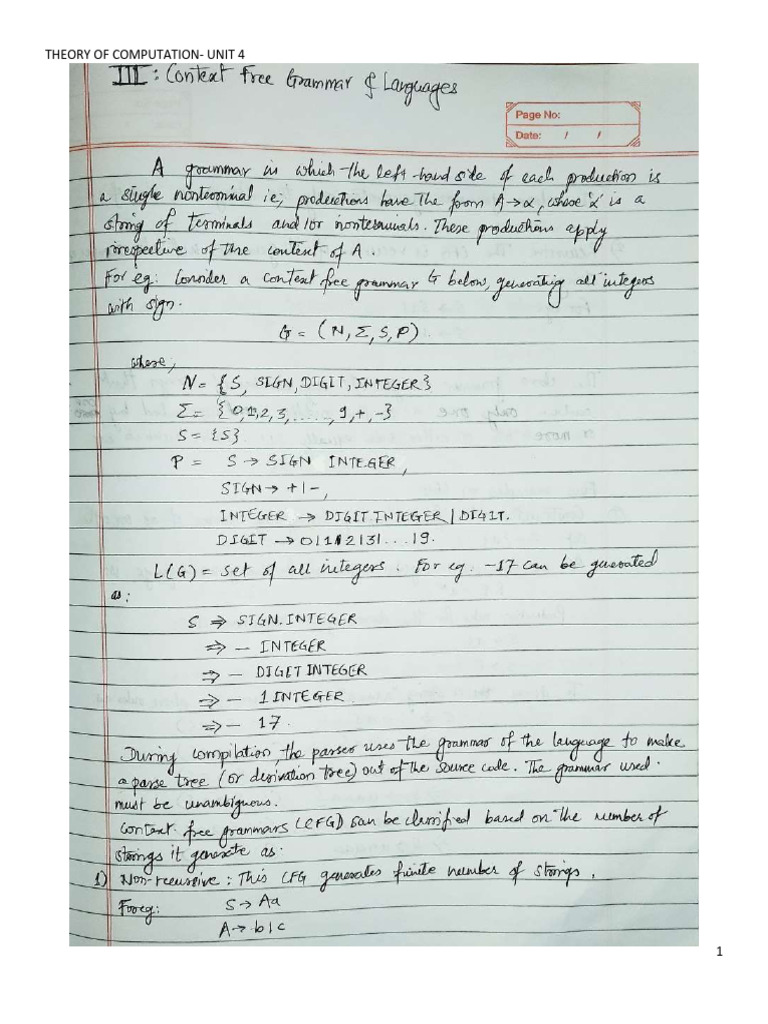 THEORY OF COMPUTATION- UNIT 4
III : Context free Grammar & Languages
Page No:
Date: / /
A grammar in which the left-hand side of each production is
a single nonterminal ie; productions have the form A→α, where 'α' is a
string of terminals and/or nonterminals. These productions apply
irrespective of the context of A.
For eg: Consider a context free grammar G below, generating all integers
with sign.
G = (N, Σ, S, P)
where,
N = {S, SIGN, DIGIT, INTEGER}
Σ = {0,1,2,3,.....,9,+,-}
S = {S}
P = S → SIGN INTEGER,
SIGN → +|-,
INTEGER → DIGIT INTEGER | DIGIT.
DIGIT → 0|1|2|3|...|9.
L(G) = set of all integers. For eg. -17 can be generated
as:
S ⇒ SIGN.INTEGER
⇒ - INTEGER
⇒ - DIGIT INTEGER
⇒ - 1 INTEGER
⇒ - 17.
During compilation, the parser uses the grammar of the language to make
a parse tree (or derivation tree) out of the source code. The grammar used
must be unambiguous.
Context free grammars (CFG) can be classified based on the number of
strings it generate as:
1) Non-recursive : This CFG generates finite number of strings.
For eg: S → Aa
A → b|c
1